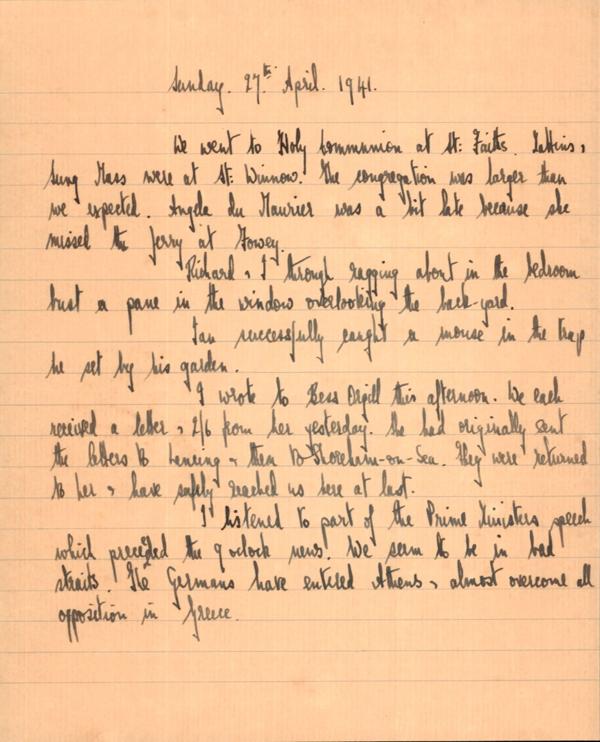 Sunday. 27th April. 1941.
We went to Holy Communion at St: Faiths. Mattins &
Sung Mass were at St: Winnow. The congregation was larger than
we expected. Angela du Maurier was a bit late because she
missed the ferry at Fowey.
Richard & I through ragging about in the bedroom
bust a pane in the window overlooking the back-yard.
Ian successfully caught a mouse in the trap
he set by his garden.
I wrote to Bess Orgill this afternoon. We each
received a letter & 2/6 from her yesterday. She had originally sent
the letters to Lancing & then to Shoreham-on-Sea. They were returned
to her & have safely reached us here at last.
I listened to part of the Prime Ministers speech
which preceded the 9 oclock news. We seem to be in bad
straits. The Germans have entered Athens & almost overcome all
opposition in Greece.